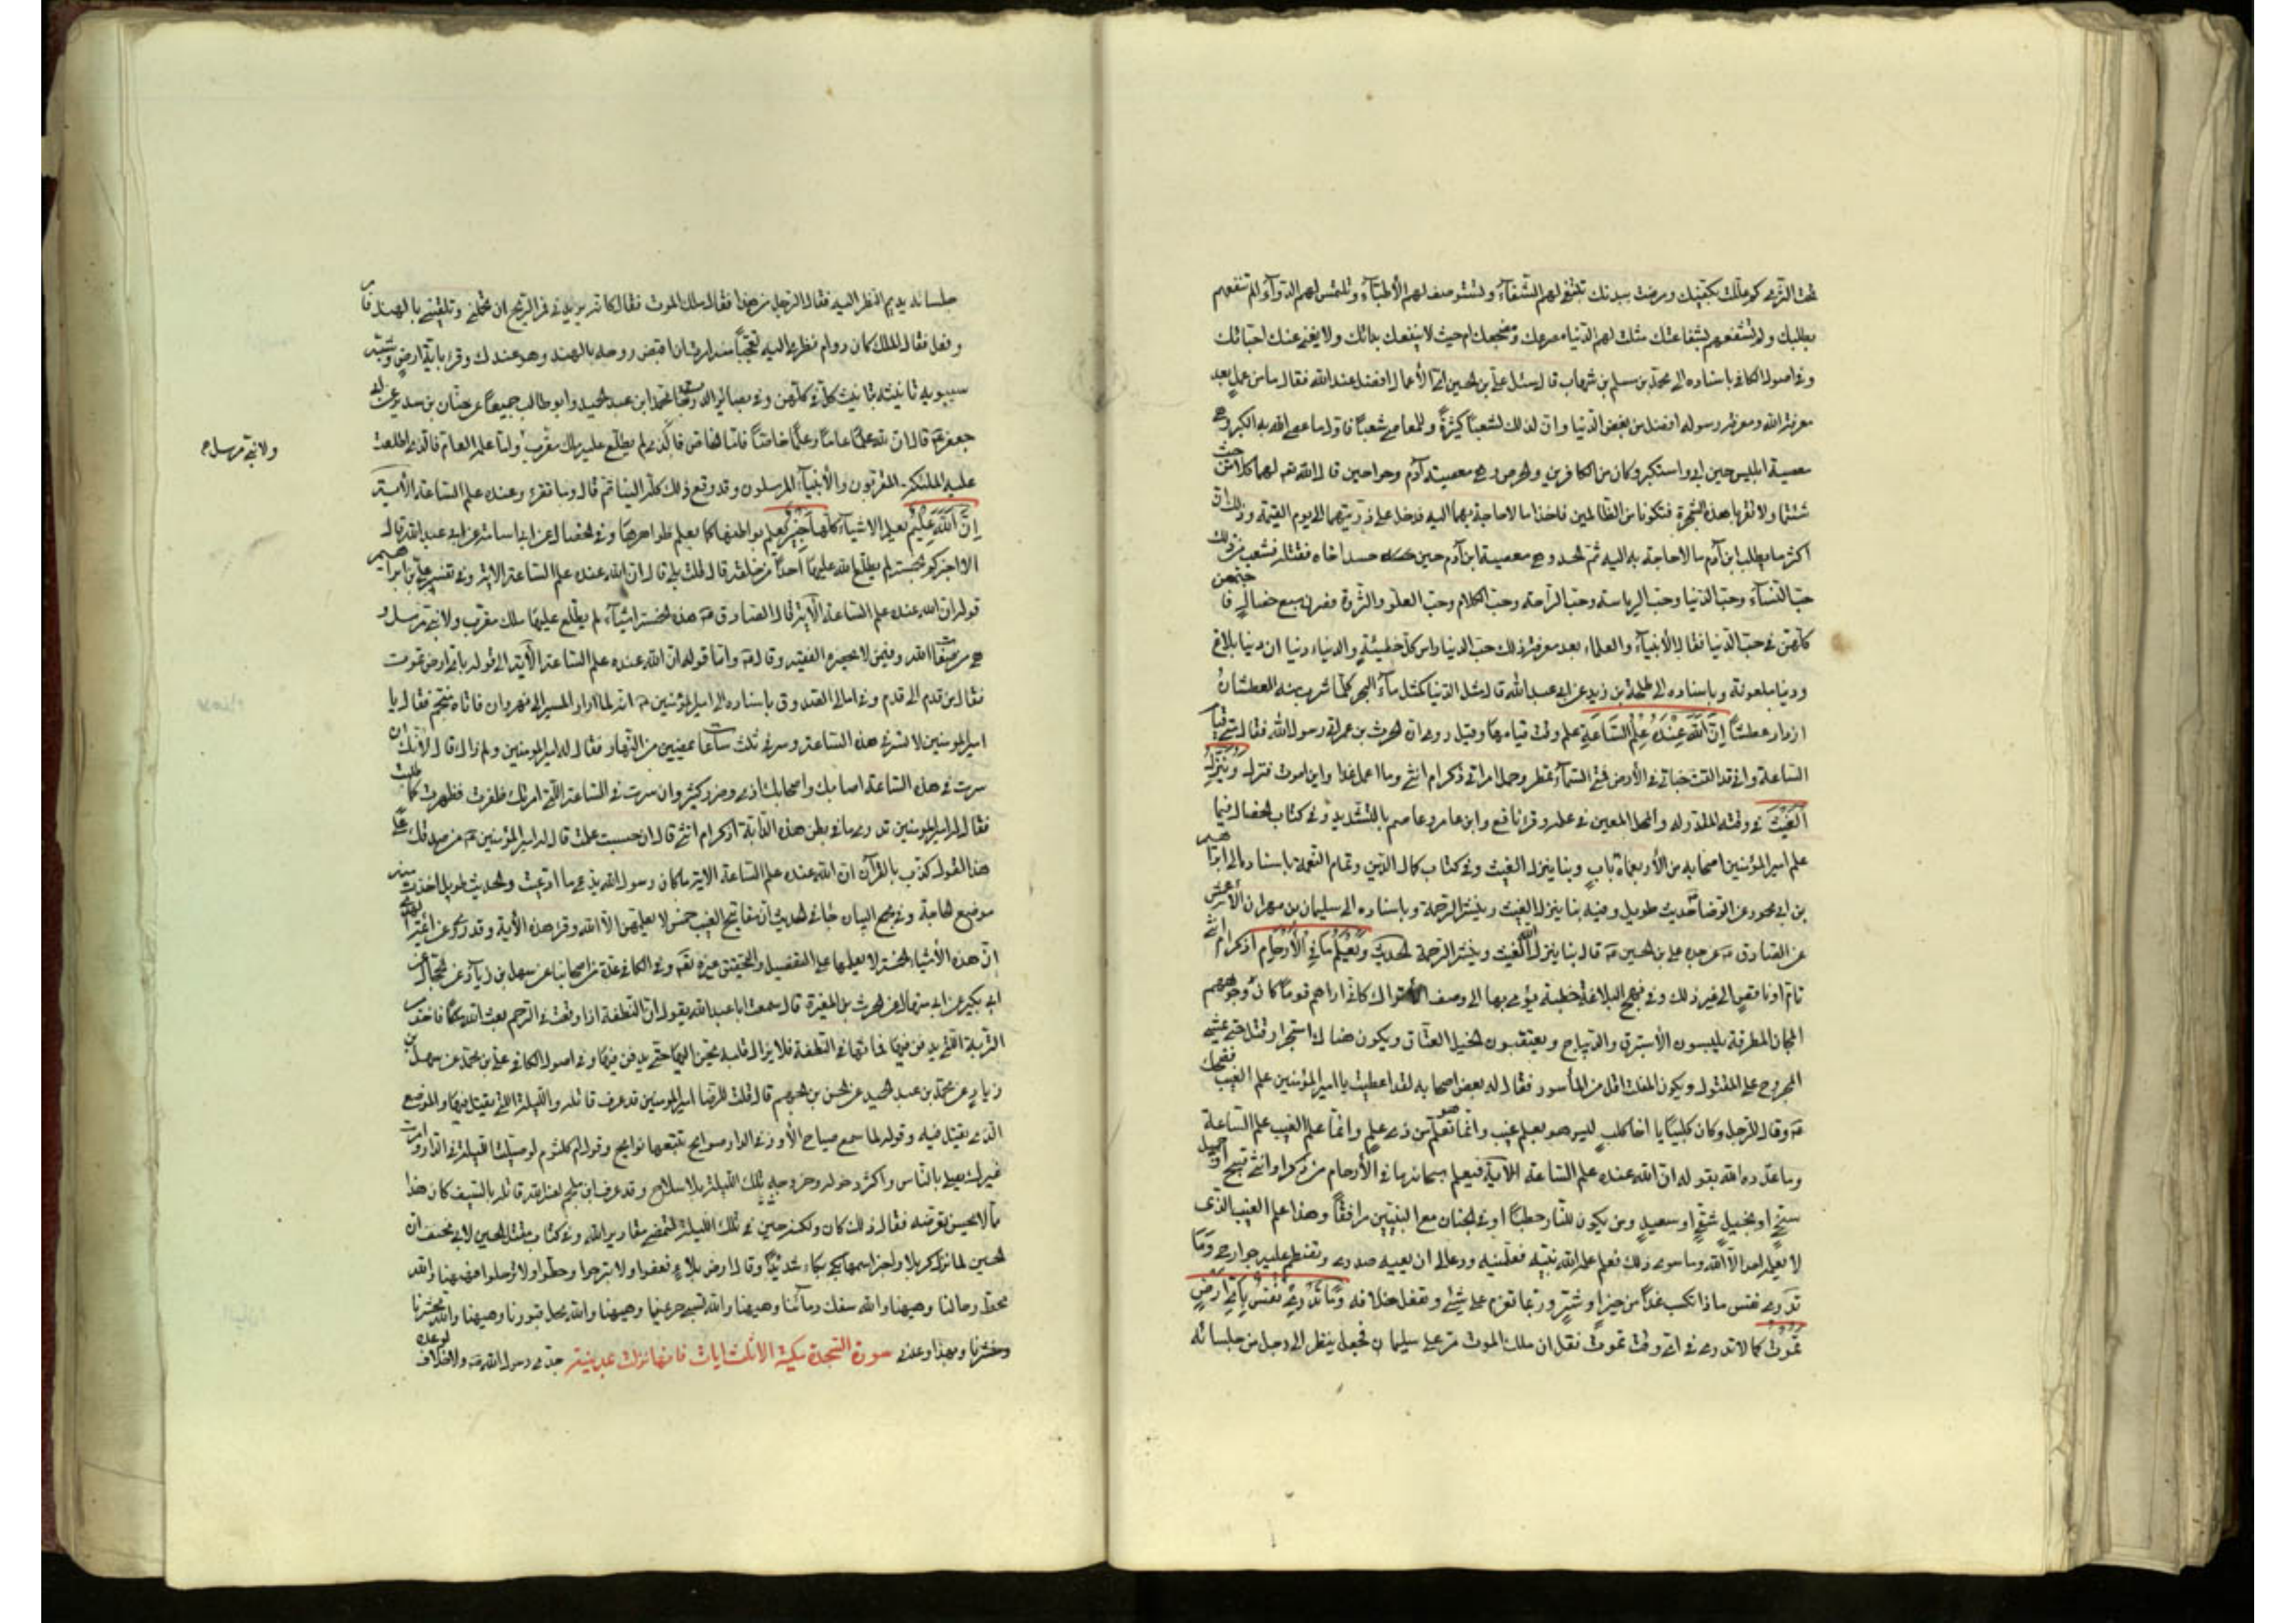 تحت الثرى كم عللت بكفيك ومرضت بيديك تلتمس لهم الشفاء وتستوصف لهم الأطباء وتلتمس لهم الدواء لم تنفعهم
بطلبك ولم تشفعهم بشفاعتك مثلت لهم الدنيا مصرعك ومضجعك حيث لا ينفعك بكائك ولا يغني عنك احبائك
وفي اصول الكافي باسناده الى محمد بن مسلم بن شهاب قال سئل علي بن الحسين اي الأعمال افضل عند الله فقال ما من عمل بعد
معرفة الله ومعرفة رسوله افضل من بغض الدنيا وان لذلك لشعبا كثيرة وللمعاصي شعبا فاول ما عصي الله به الكبر وهي
معصية ابليس حين ابى واستكبر وكان من الكافرين والحرص وهي معصية آدم وحوا حين قال الله لهما كلا من حيث
شئتما ولا تقربا هذه الشجرة فتكونا من الظالمين فاخذا ما لا حاجة بهما اليه فدخل على ذريتهما الى يوم القيمة وذلك ان
اكثر ما يطلب ابن آدم ما لا حاجة به اليه ثم الحسد وهي معصية ابن آدم حين حسد اخاه فقتله فتشعب من ذلك
حب النساء وحب الدنيا وحب الرياسة وحب الراحة وحب الكلام وحب العلو والثروة فصرن سبع خصال فاجتمعن
كلهن في حب الدنيا فقال الأنبياء والعلماء بعد معرفة ذلك حب الدنيا راس كل خطيئة والدنيا دنيا ان دنيا بلاغ
ودنيا ملعونة وباسناده الى طلحة بن زيد عن ابي عبد الله قال مثل الدنيا كمثل ماء البحر كلما شرب منه العطشان
ازداد عطشا إِنَّ اللَّهَ عِنْدَهُ عِلْمُ السَّاعَةِ علم وقت قيامها وقيل روي ان الحرث بن عمر اتى رسول الله فقال متى قيام
الساعة واني قد القيت حباتي في الأرض فمتى السماء تمطر وحمل امراتي ذكر ام انثى وما اعمل غدا واين اموت فنزلت وَيُنَزِّلُ
الْغَيْثَ في وقته المقدر له والمحل المعين في علمه وقرء نافع وابن عامر وعاصم بالتشديد وفي كتاب الخصال فيما
علم امير المؤمنين اصحابه من الأربعماة باب وبنا ينزل الغيث وفي كتاب كمال الدين وتمام النعمة باسناده الى ابراهيم
بن ابي محمود عن الرضا حديث طويل وفيه بنا ينزل الغيث وينشر الرحمة وباسناده الى سليمان بن مهران الأعمش
عن الصادق عن جده علي بن الحسين قال بنا ينزل الله الغيث وينشر الرحمة الحديث وَيَعْلَمُ مَا فِي الْأَرْحَامِ اذكر ام انثى
تام او ناقص الى غير ذلك وفي نهج البلاغة خطبة يؤمي بها الى وصف الأتراك كاني اراهم قوما كان وجوههم
المجان المطرقة يلبسون الأستبرق والديباج ويعتقبون الخيل العتاق ويكون هناك استحرار قتل حتى يمشي
المجروح على المقتول ويكون المفلت اقل من المأسور فقال له بعض اصحابه لقد اعطيت يا امير المؤمنين علم الغيب فضحك
وقال للرجل وكان كلبيا يا اخا كلب ليس هو بعلم غيب وانما هو تعلم من ذي علم وانما علم الغيب علم الساعة
وما عدده الله بقوله ان الله عنده علم الساعة الآية فيعلم سبحانه ما في الأرحام من ذكر او انثى وقبيح او جميل
سخي او بخيل شقي او سعيد ومن يكون للنار حطبا او في الجنان مع النبيين مرافقا وهذا علم الغيب الذي
لا يعلمه احد الا الله وما سوى ذلك فعلم علمه الله نبيه فعلمنيه ودعا لي ان يعيه صدري وتضطم عليه جوارحي وَمَا
تَدْرِي نفس ماذا تكسب غدا من خير او شر وربما تعزم على شيء وتفعل خلافه وَمَا تَدْرِي نَفْسٌ بِأَيِّ أَرْضٍ
تَمُوتُ كما لا تدري في اي وقت تموت نقل ان ملك الموت مر على سليمان فجعل ينظر الى رجل من جلسائه
جلسائه يديم النظر اليه فقال الرجل من هذا فقال ملك الموت فقال كانه يريدني فمر الريح ان تحملني وتلقيني بالهند فامر
وفعل فقال الملك كان دوام نظري اليه تعجبا منه اذ امرت ان اقبض روحه بالهند وهو عندك وقرء باية ارض وشبه
سيبويه تانيثه بتانيث كل في كلتهن وفي بصائر الدرجات حدثنا محمد ابن عبد الحميد وابو طالب جميعا عن حنان بن سدير عن ابي
جعفر قال ان لله علما عاما وعلما خاصا فاما الخاص فالذي لم يطلع عليه ملك مقرب واما علمه العام فالذي اطلعت
ولا نبي مرسل
عليه الملئكة المقربون والأنبياء المرسلون وقد وقع ذلك كله الينا ثم قال وما تقرء وعنده علم الساعة الأية
إِنَّ اللَّهَ عَلِيمٌ يعلم الاشياء كلها خَبِيرٌ يعلم بواطنها كما يعلم ظواهرها وفي الخصال عن ابي اسامة عن ابي عبد الله قال
الا اخبركم بخمسة لم يطلع الله عليها احدا من خلقه قال قلت بلى قال ان الله عنده علم الساعة الاية وفي تفسير علي بن ابراهيم
قوله ان الله عنده علم الساعة الآية قال الصادق هذه الخمسة اشياء لم يطلع عليها ملك مقرب ولا نبي مرسل و
هي من صفات الله وفيمن لا يحضره الفقيه وقال واما قوله ان الله عنده علم الساعة الآية الى قوله باي ارض تموت
فقال من قدم الى قدم وفي امالي الصدوق باسناده الى امير المؤمنين انه لما اراد المسير الى نهروان فاتاه منجم فقال يا
امير المؤمنين لا تسر في هذه الساعة وسر في ثلث ساعات يمضين من النهار فقال له امير المؤمنين ولم ذاك قال لأنك ان
سرت في هذه الساعة اصابك واصحابك اذى وضر كثير وان سرت في الساعة التي امرتك ظفرت وظهرت كما طلبت
فقال له امير المؤمنين تدري ما في بطن هذه الدابة اذكر ام انثى قال ان حسبت علمت قال له امير المؤمنين من صدقك على
هذا القول كذب بالقرآن ان الله عنده علم الساعة الاية ما كان رسول الله يدعي ما ادعيت والحديث طويل اخذت منه
موضع الحاجة وفي مجمع البيان جاء في الحديث ان مفاتيح الغيب خمس لا يعلمهن الا الله وقرء هذه الأية وقد روي عن ائمة الهدى
ان هذه الأشياء الخمسة لا يعلمها على التفصيل والتحقيق غيره تعالى وفي الكافي عدة من اصحابنا عن سهل بن زياد عن الحجال عن
ابن بكير عن ابي منهال عن الحرث بن المغيرة قال سمعت ابا عبد الله يقول ان النطفة اذا وقعت في الرحم بعث الله ملكا فاخذ من
التربة التي يدفن فيها فماثها في النطفة فلا يزال قلبه يحن اليها حتى يدفن فيها وفي اصول الكافي علي بن محمد عن سهل بن
زياد عن محمد بن عبد الحميد عن الحسن بن الجهم قال قلت للرضا امير المؤمنين قد عرف قاتله والليلة التي يقتل فيها والموضع
الذي يقتل فيه وقوله لما سمع صياح الأوز في الدار صوايح تتبعها نوايح وقول ام كلثوم لو صليت الليلة في الدار وامرت
غيرك يصلي بالناس واكثر دخوله وخروجه تلك الليلة بلا سلاح وقد عرف ابن ملجم لعنه الله قاتله بالسيف كان هذا
مما لا يحسن تعرضه فقال ذلك كان ولكنه حين في تلك الليلة لتمضي مقادير الله وفي كتاب مقتل الحسين لابي مخنف ان
الحسين لما نزل كربلا واخبر اسمها بكى بكاء شديدا وقال ارض بلاء فقفوا ولا تبرحوا وحطوا ولا ترحلوا فههنا والله
محط رحالنا وههنا والله سفك دمائنا وههنا والله تسبى حريمنا وههنا والله محل قبورنا وههنا والله محشرنا
ومنشرنا وبهذا وعدني جدي رسول الله ولا خلاف لوعده سورة السجدة مكية الا ثلث ايات فانها نزلت بمدينة